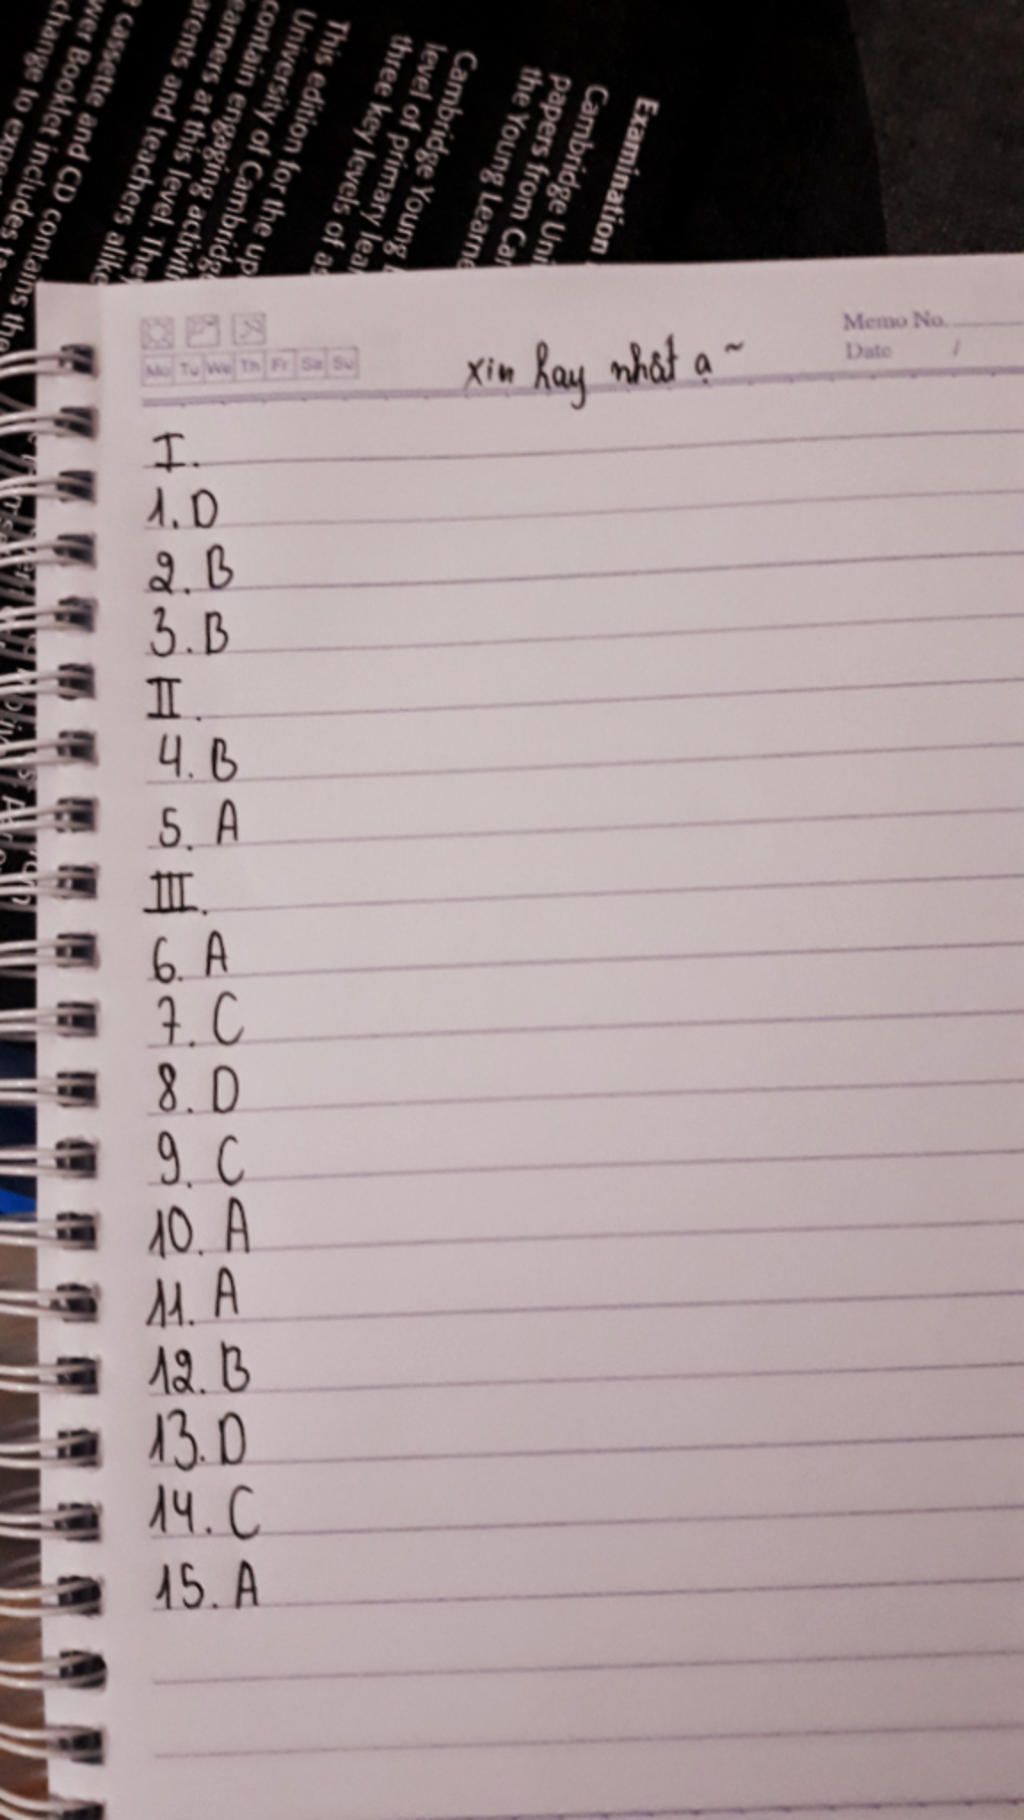 Examination
Cambridge Uni
papers from Ca
the Young Learne
Cambridge Young
level of primary lea
three key levels of as
This edition for the up
University of Cambridg
contain engaging activiti
earners at this level. The
arents and teachers alike
cassette and CD contains the
wer Booklet includes
change to
Memo No.
Date /
Mo Tu We Th Fr Sa Su
xin hay nhất ạ ~
I.
1. D
2. B
3. B
II.
4. B
5. A
III.
6. A
7. C
8. D
9. C
10. A
11. A
12. B
13. D
14. C
15. A